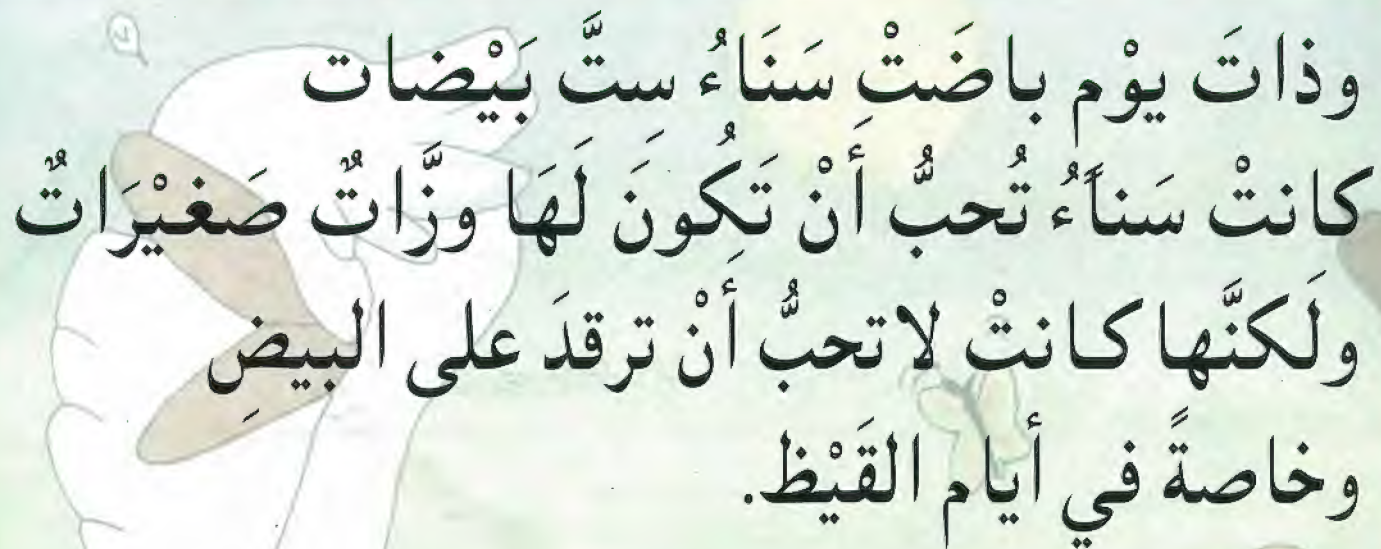 وذاتَ يوْم باضَتْ سَنَاءُ ستَّ بَيْضات
كانتْ سَناءُ تُحبُّ أَنْ تَكُونَ لَهَا وزَّاتٌ صَغيْرَاتٌ
ولَكنَّها كانتْ لاتحبُّ أَنْ ترقدَ على البيضِ
وخاصةً في أيام القَيْظ.